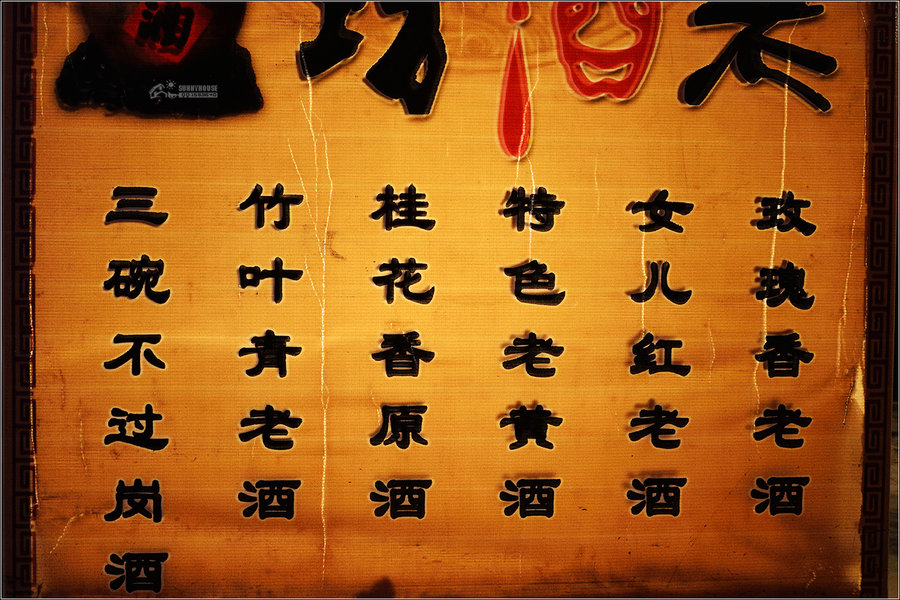 湘
玫瑰香老酒
女儿红老酒
特色老黄酒
桂花香原酒
竹叶青老酒
三碗不过岗酒
SUNNYHOUSE